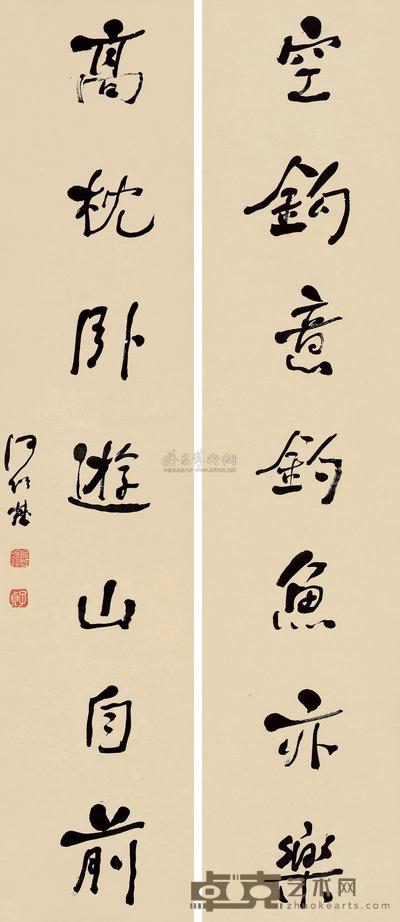 空鈎意釣魚亦樂
高枕卧遊山自前
何紹基
卓克艺术网
zhuokearts.com